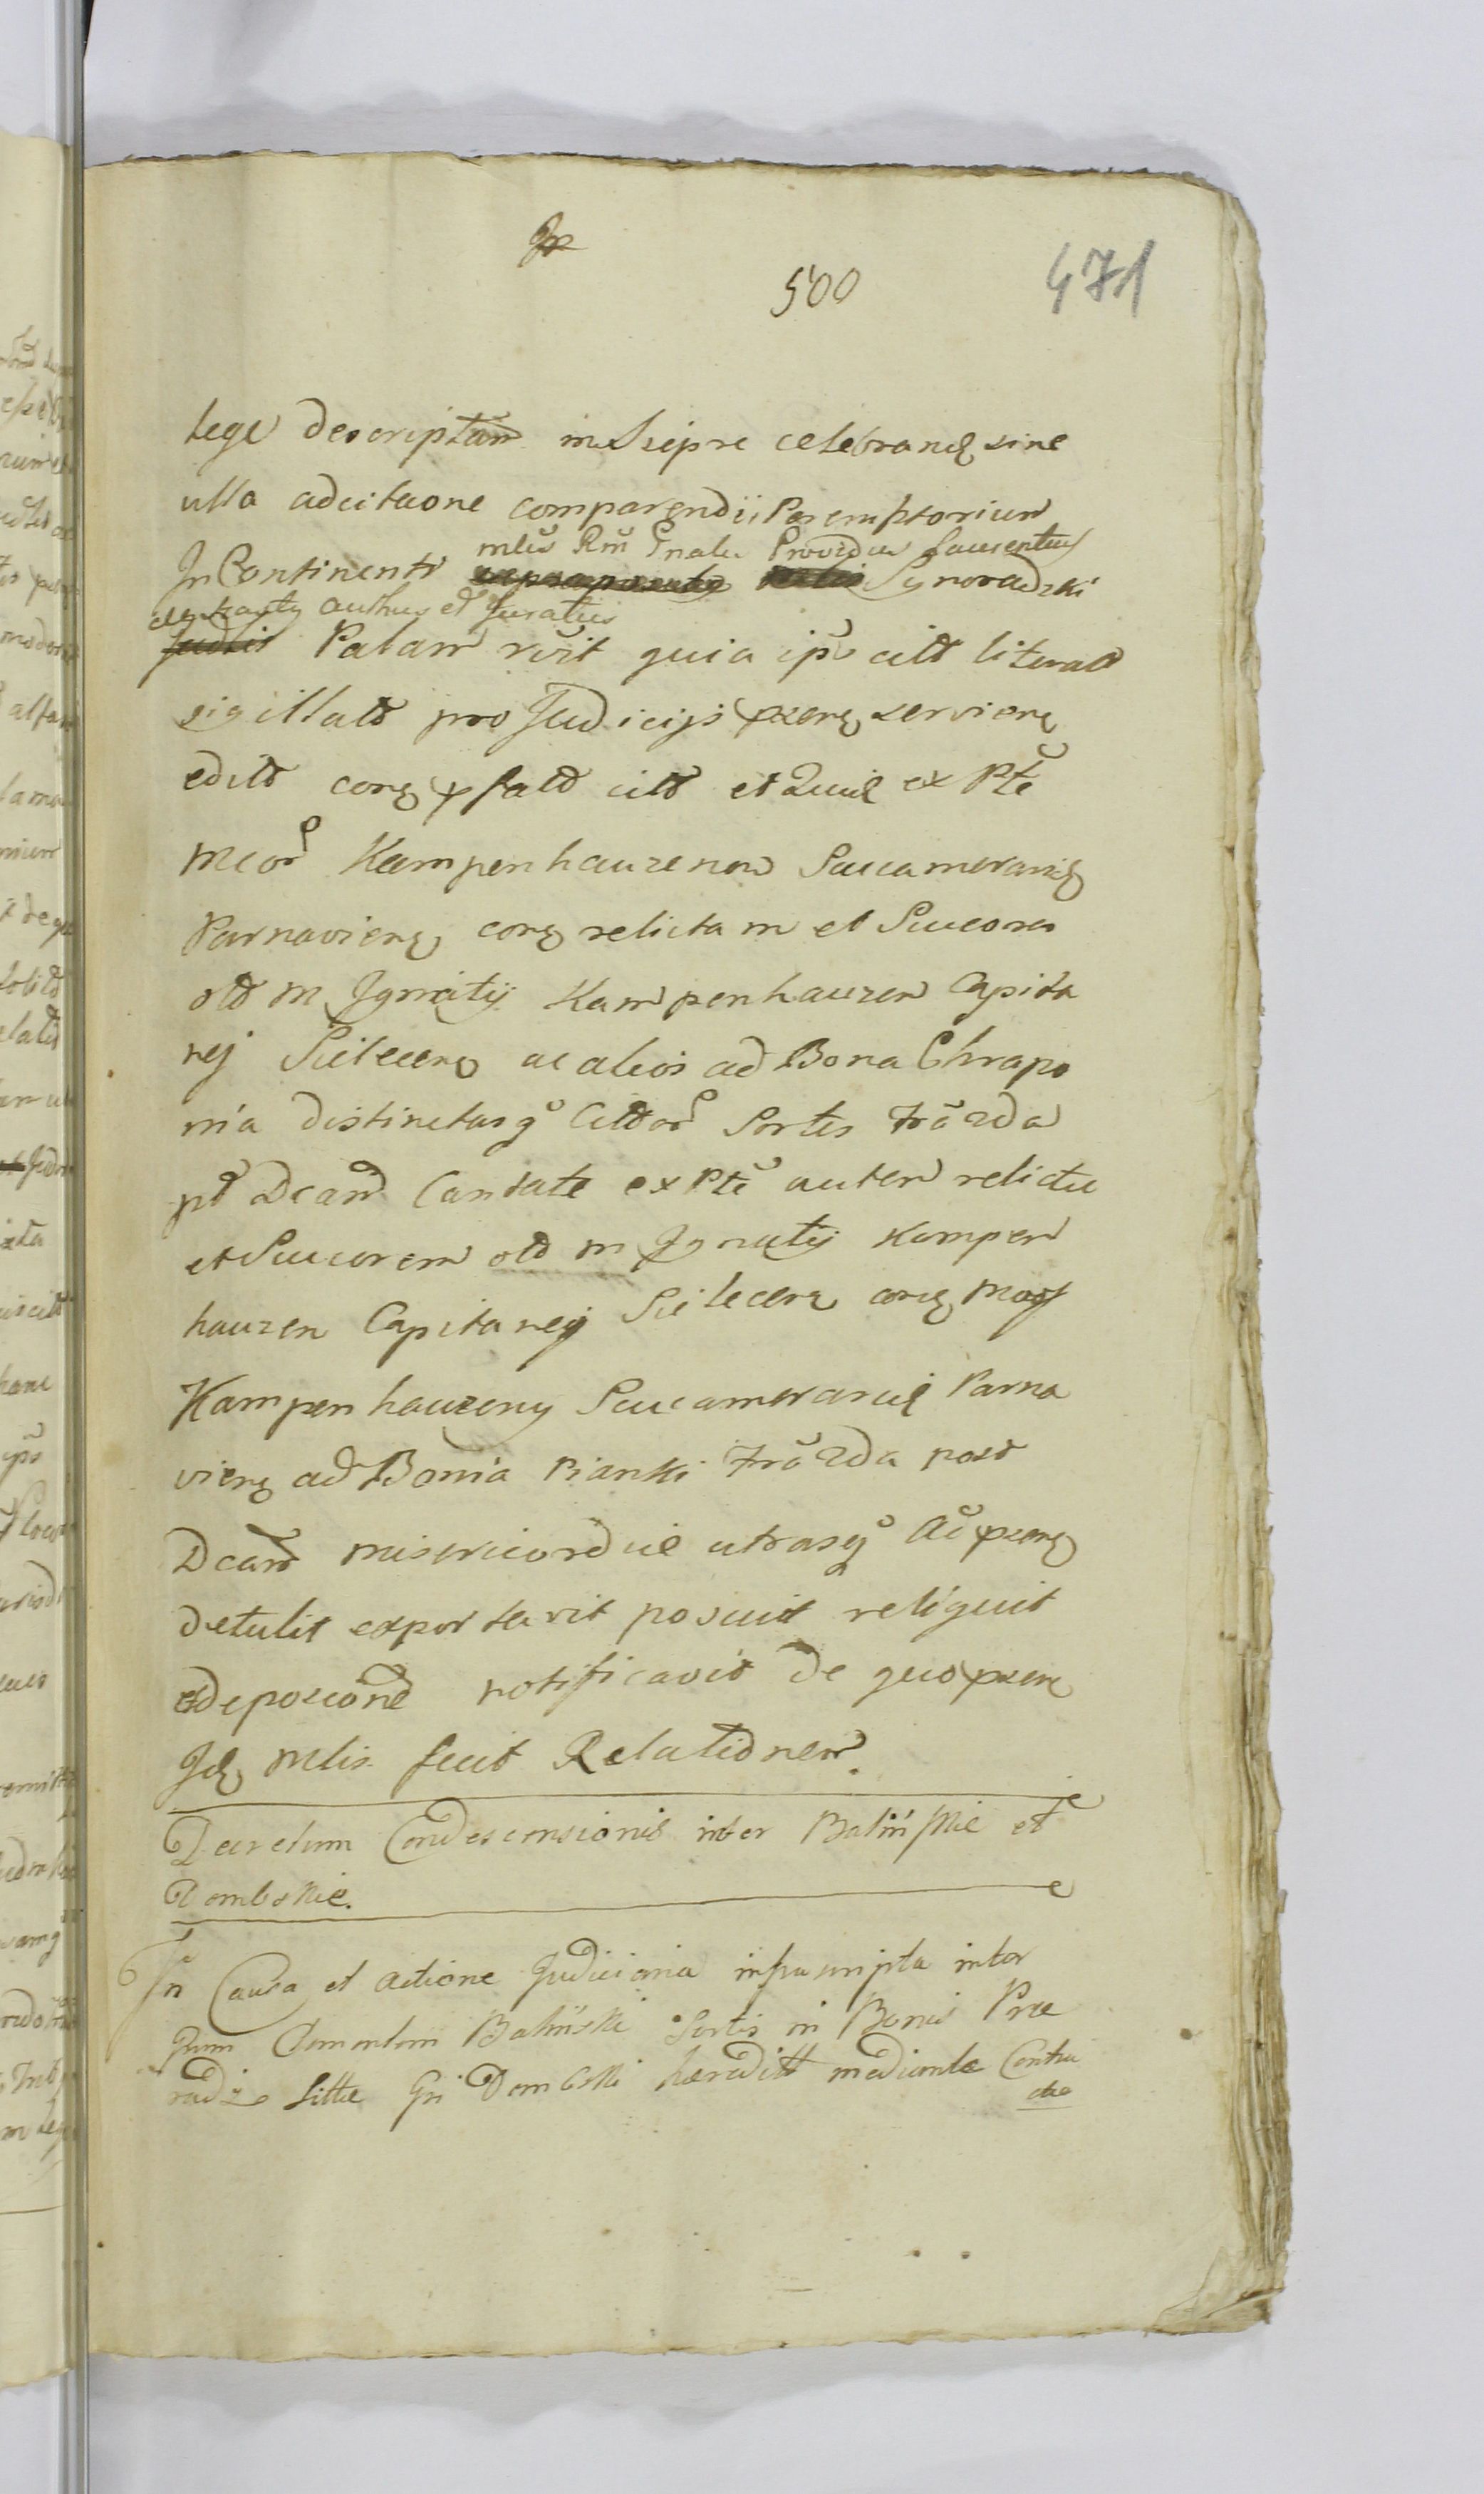 500
471
lege descriptam in Sieprc celebrand sine
ulla adcitaone comparendi Peremptorium
mlis Rni Gnalis Providus Laurentius
In Continenti Synoradzki
authus et Juratus
Palam rcvit quia ips citt literatt
sigillatt pro Judicijs pxen servien
editt coram pfatt citt et Quid ex Pte
Mcor Kampenhauzenow Succamerarid
Parnavien coram relictam et Succores
olt M Ignatij Kampenhauzen Capita
nej Sielecen ac alios ad Bona Chrapo
nia distinctasq Cittor Sortes Frã 2da
pt Dcam Cantate ex Pte autem relictae
et Succorem olt M Ignatij Kampen
hauzen Capitanej Sielecen coram Mcos
Kampenhauzeny Succamerarid Parna
vien ad Bonia Pianki Frã 2da post
Dcam misericordie utrasq Ac pxen
detulit exportavit posuit reliquit
et deposione notificavit de quo pxen
Id Mlis fecit Relationem.
Decretum Condescensionis inter Balinskie et
Dombskie.
In Causa et actione Judiciaria infrascripta inter
Gnum Clementem Balinski Sortis in Bonis Prae
radz Sittae Gn Dombski haereditt mediante Contra
ctae